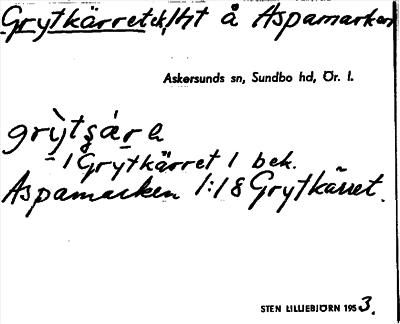 Grytkärret å Aspamarken
Askersunds sn, Sundbo hd, Ör. l.
grỳtʂár
1 Grytkärret 1 bek.
Aspamarken 1:18 Grytkärret.
STEN LILLIEBJÖRN 1953.